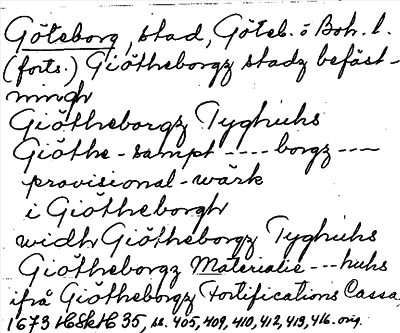 Göteborg, stad, Göteb. o Boh. l.
(forts.) Giötheborgz stadz befäst-
ningh
Giötheborgz Tyghuhs
Giöthe-sampt ---- borgz ---
provisional-wärk
i Giötheborgh
widh Giötheborgz Tyghuhs
Giötheborgz Materialie---huhs
ifrå Giötheborgz Fortifications Cassa,
1673 HSkH 35, s. 405, 409, 410, 412, 413, 416. orig.